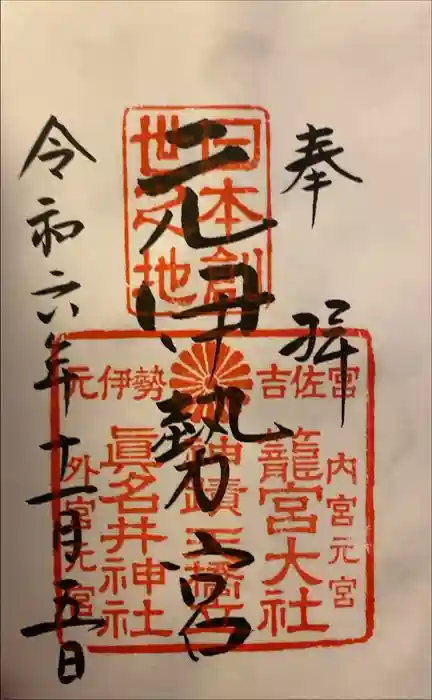 奉拝
元伊勢宮
令和六年十一月五日
日本創
世之地
吉佐宮
元伊勢
内宮元宮
籠宮大社
神蹟天橋立
眞名井神社
外宮元宮